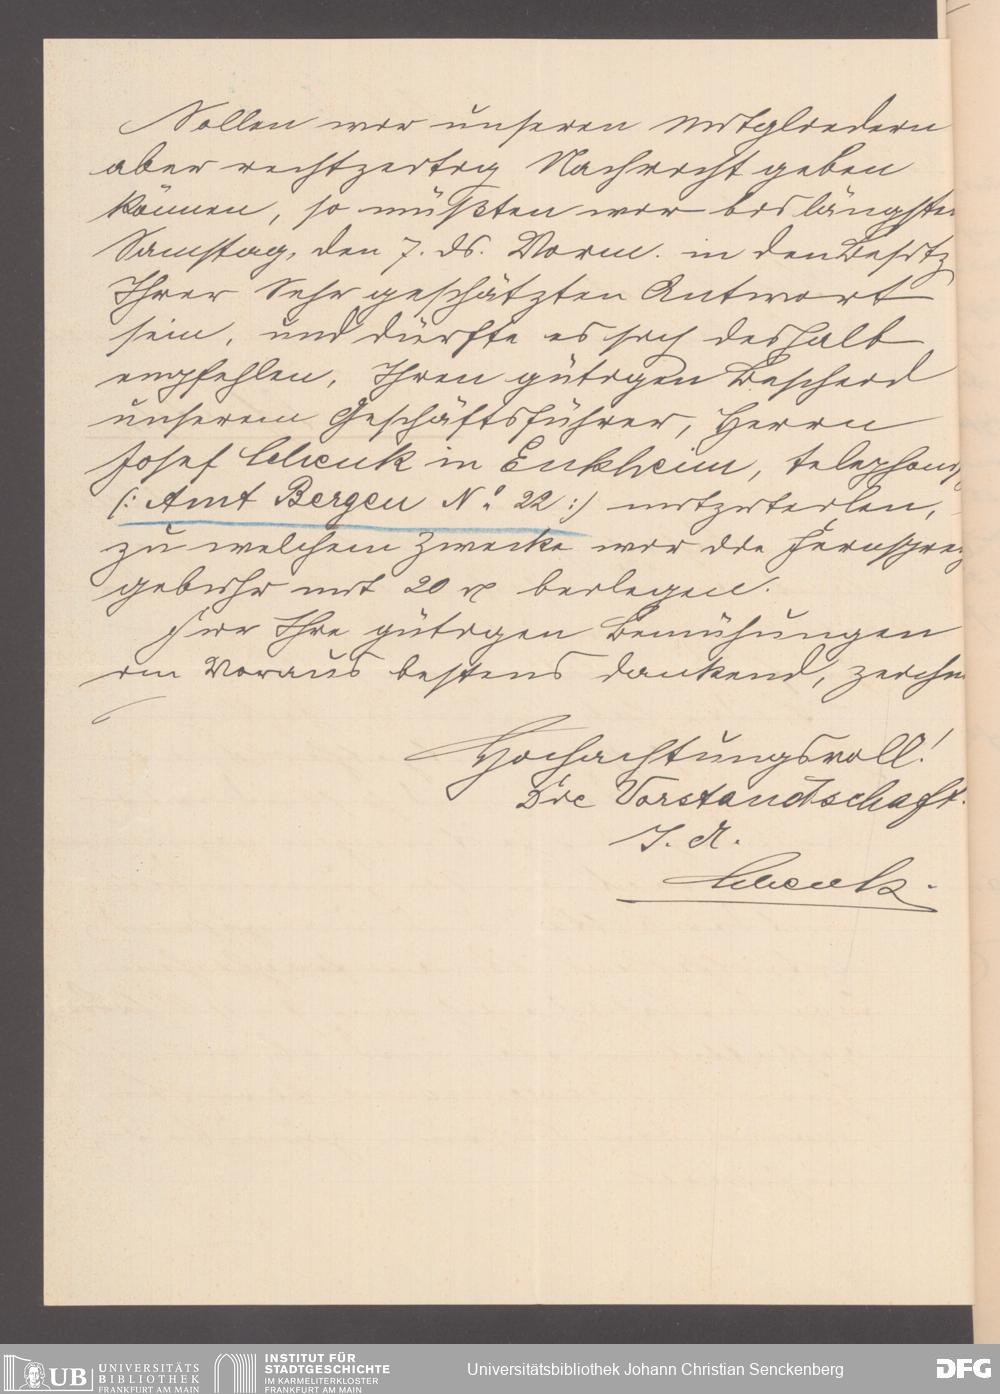 Sollen wir unseren Mitgliedern
aber rechtzeitig Nachricht geben
können, so müßten wir bis längsten
Samstag, den 7. ds. Vorm. in den Besitz
Ihrer sehr geschätzten Antwort
sein, und dürfte es sich deshalb
empfehlen, Ihren gütigen Bescheid
unserem Geschäftsführer, Herrn
Josef Schenk in Enkheim, telephonis
(: Amt Bergen No 22 :) mitzuteilen,
zu welchem Zwecke wir die Fernsprech
gebühr mit 20 ₰ beilegen.
Für Ihre gütigen Bemühungen
im Voraus bestens dankend, zeichn
Hochachtungsvoll!
Die Vorstandschaft.
I. A.
Schenk.
UB UNIVERSITÄTS
BIBLIOTHEK
FRANKFURT AM MAIN
INSTITUT FÜR
STADTGESCHICHTE
IM KARMELITERKLOSTER
FRANKFURT AM MAIN
Universitätsbibliothek Johann Christian Senckenberg
DFG